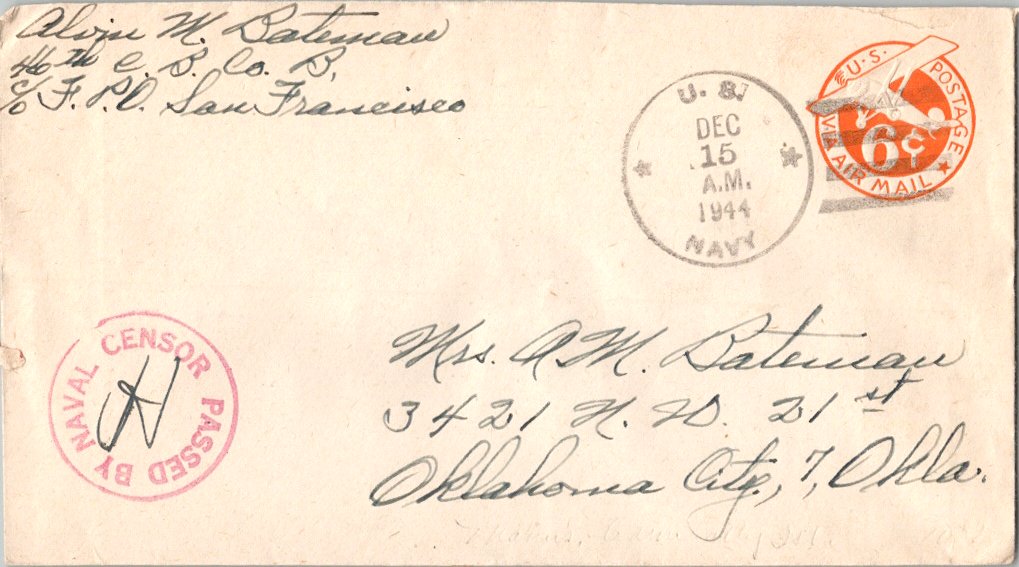 Alvin M. Bateman
46th C. B. Co. B,
c/o F. P. O. San Francisco
U. S.
DEC
15
A.M.
1944
NAVY
U.S. POSTAGE
6¢
VIA AIR MAIL
PASSED BY NAVAL CENSOR
Mrs. A M. Bateman
3421 N. W. 21st
Oklahoma City, 7, Okla.